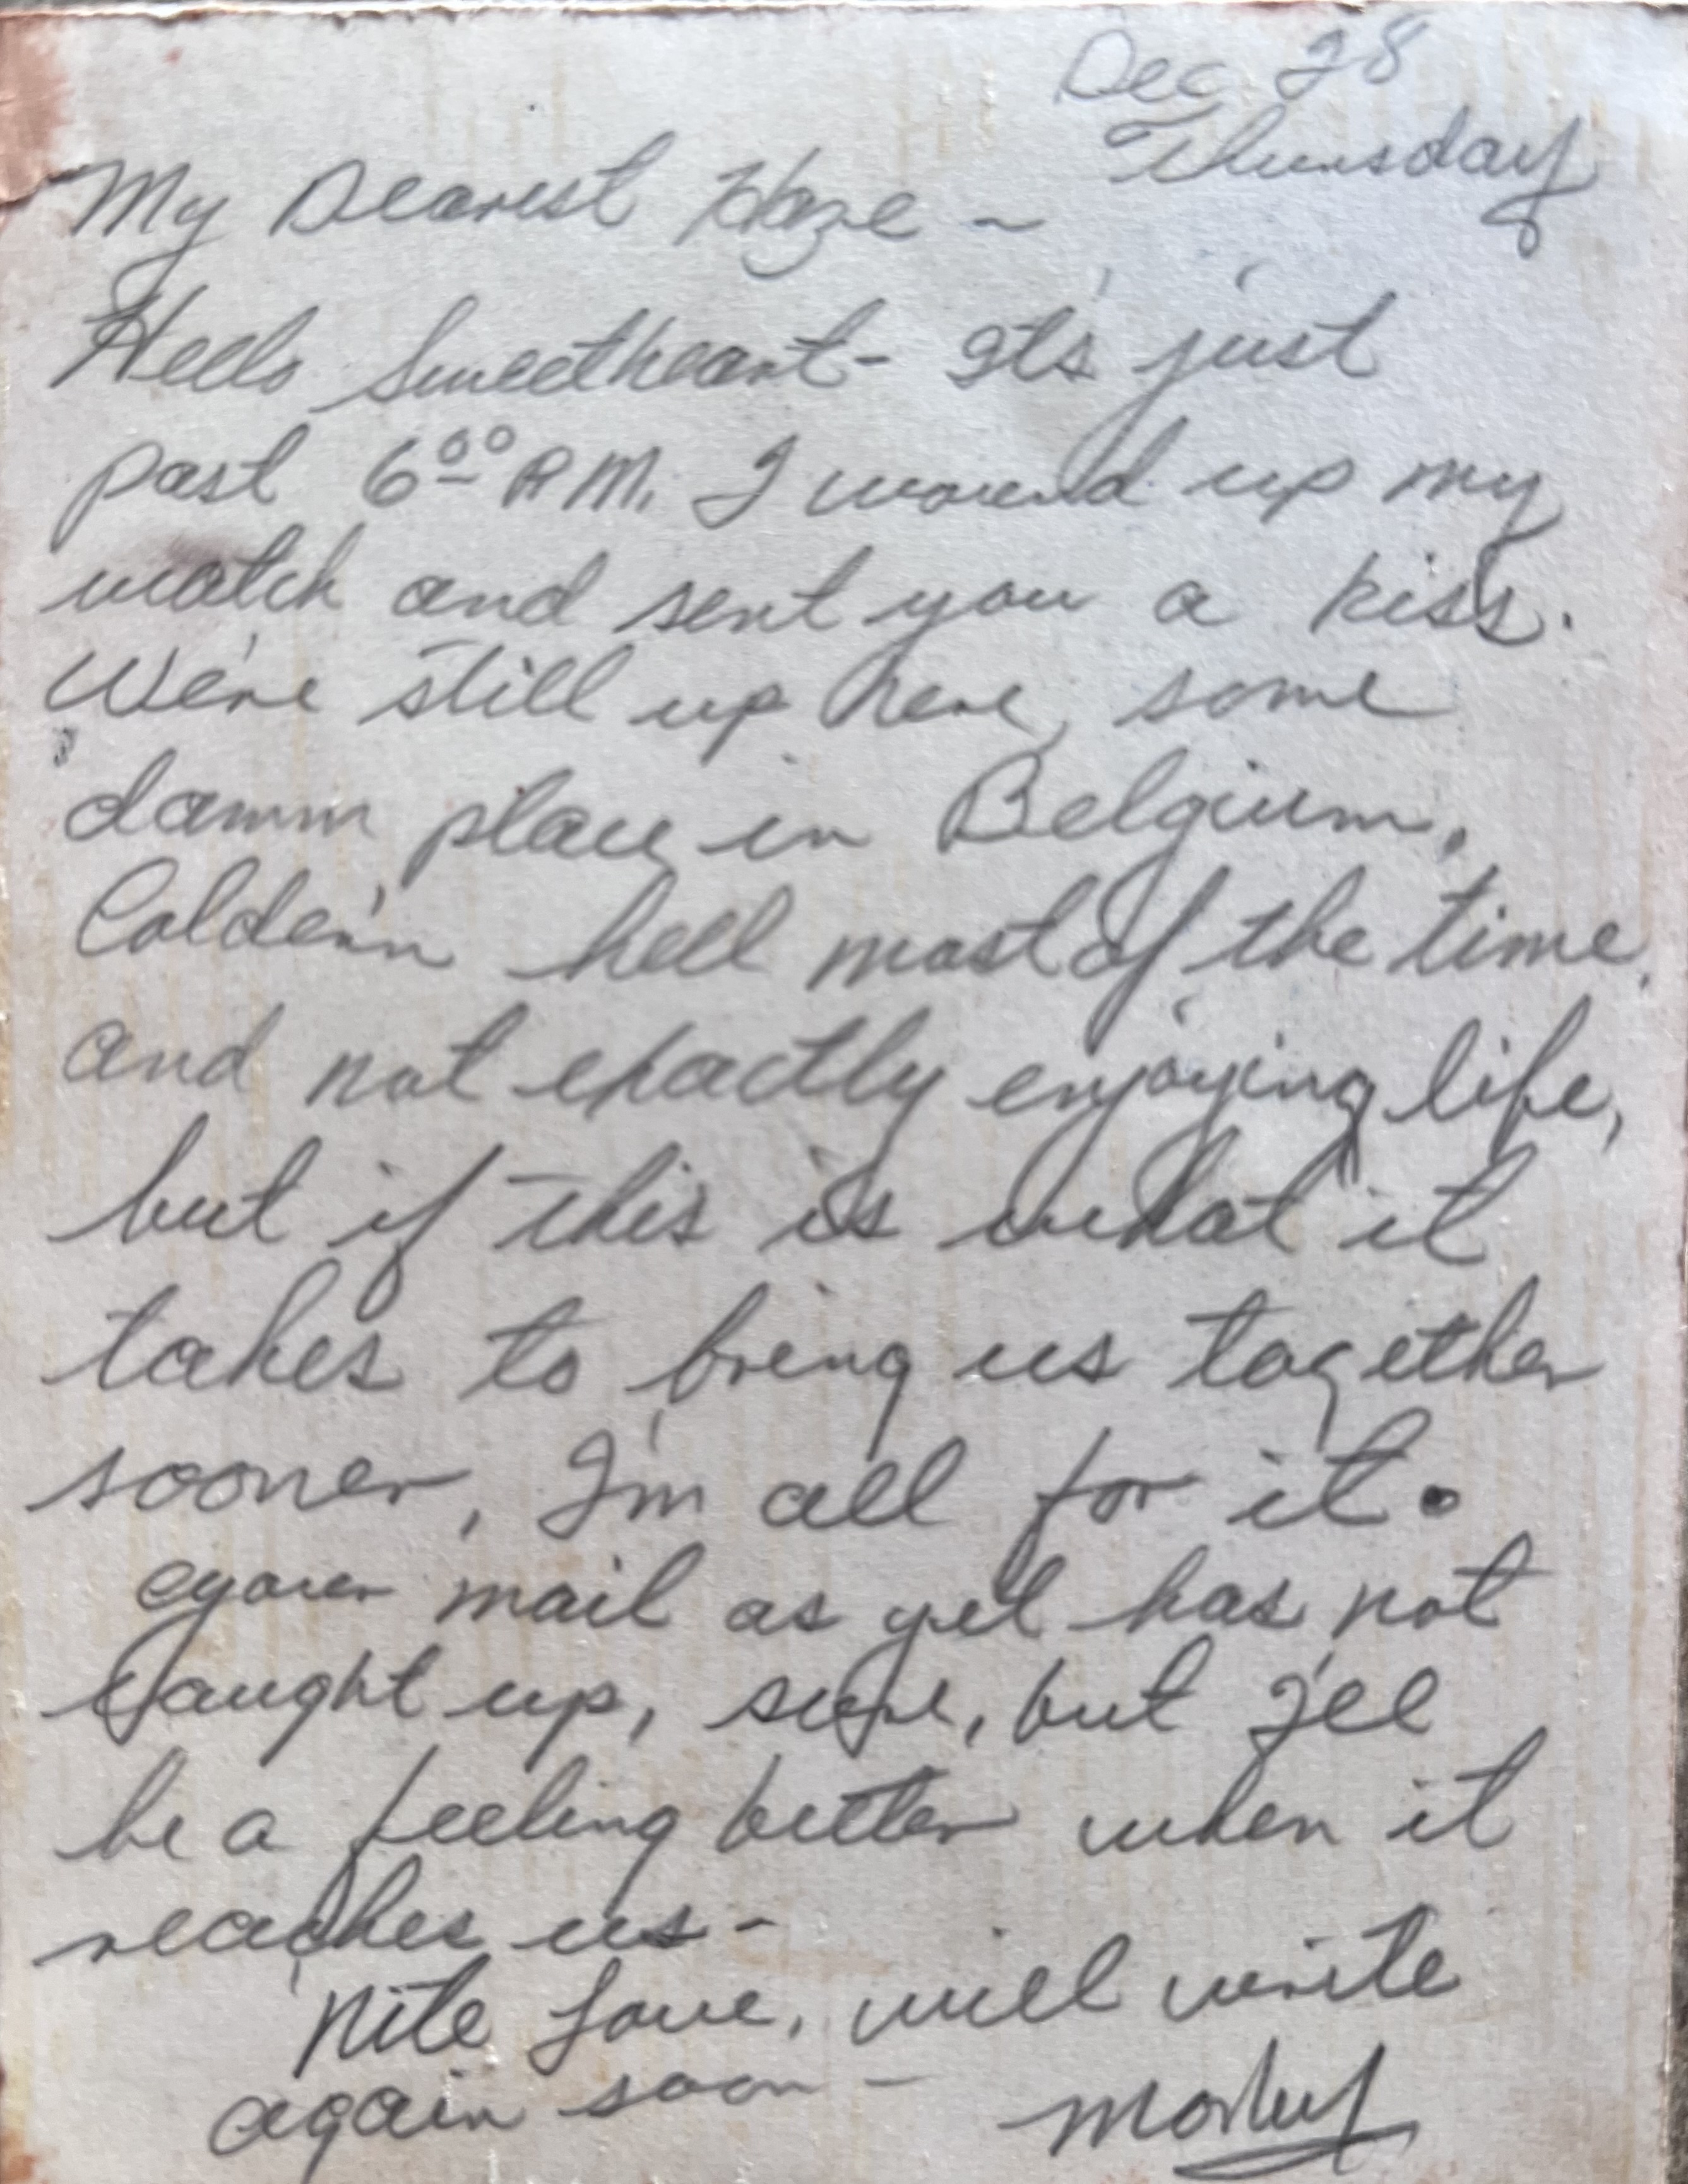 Dec 28
Thursday
My Dearest Haze ~
Hello Sweetheart - It's just
past 6⁰⁰ P.M. I wound up my
watch and sent you a kiss.
We're still up here, some
damm place in Belgium.
Colder'n hell most of the time.
and not exactly enjoying life,
but if this is what it
takes to bring us together
sooner, I'm all for it.
your mail as yet has not
caught up, sure, but I'll
be a feeling better when it
reaches us -
Nite Love, will write
again soon -